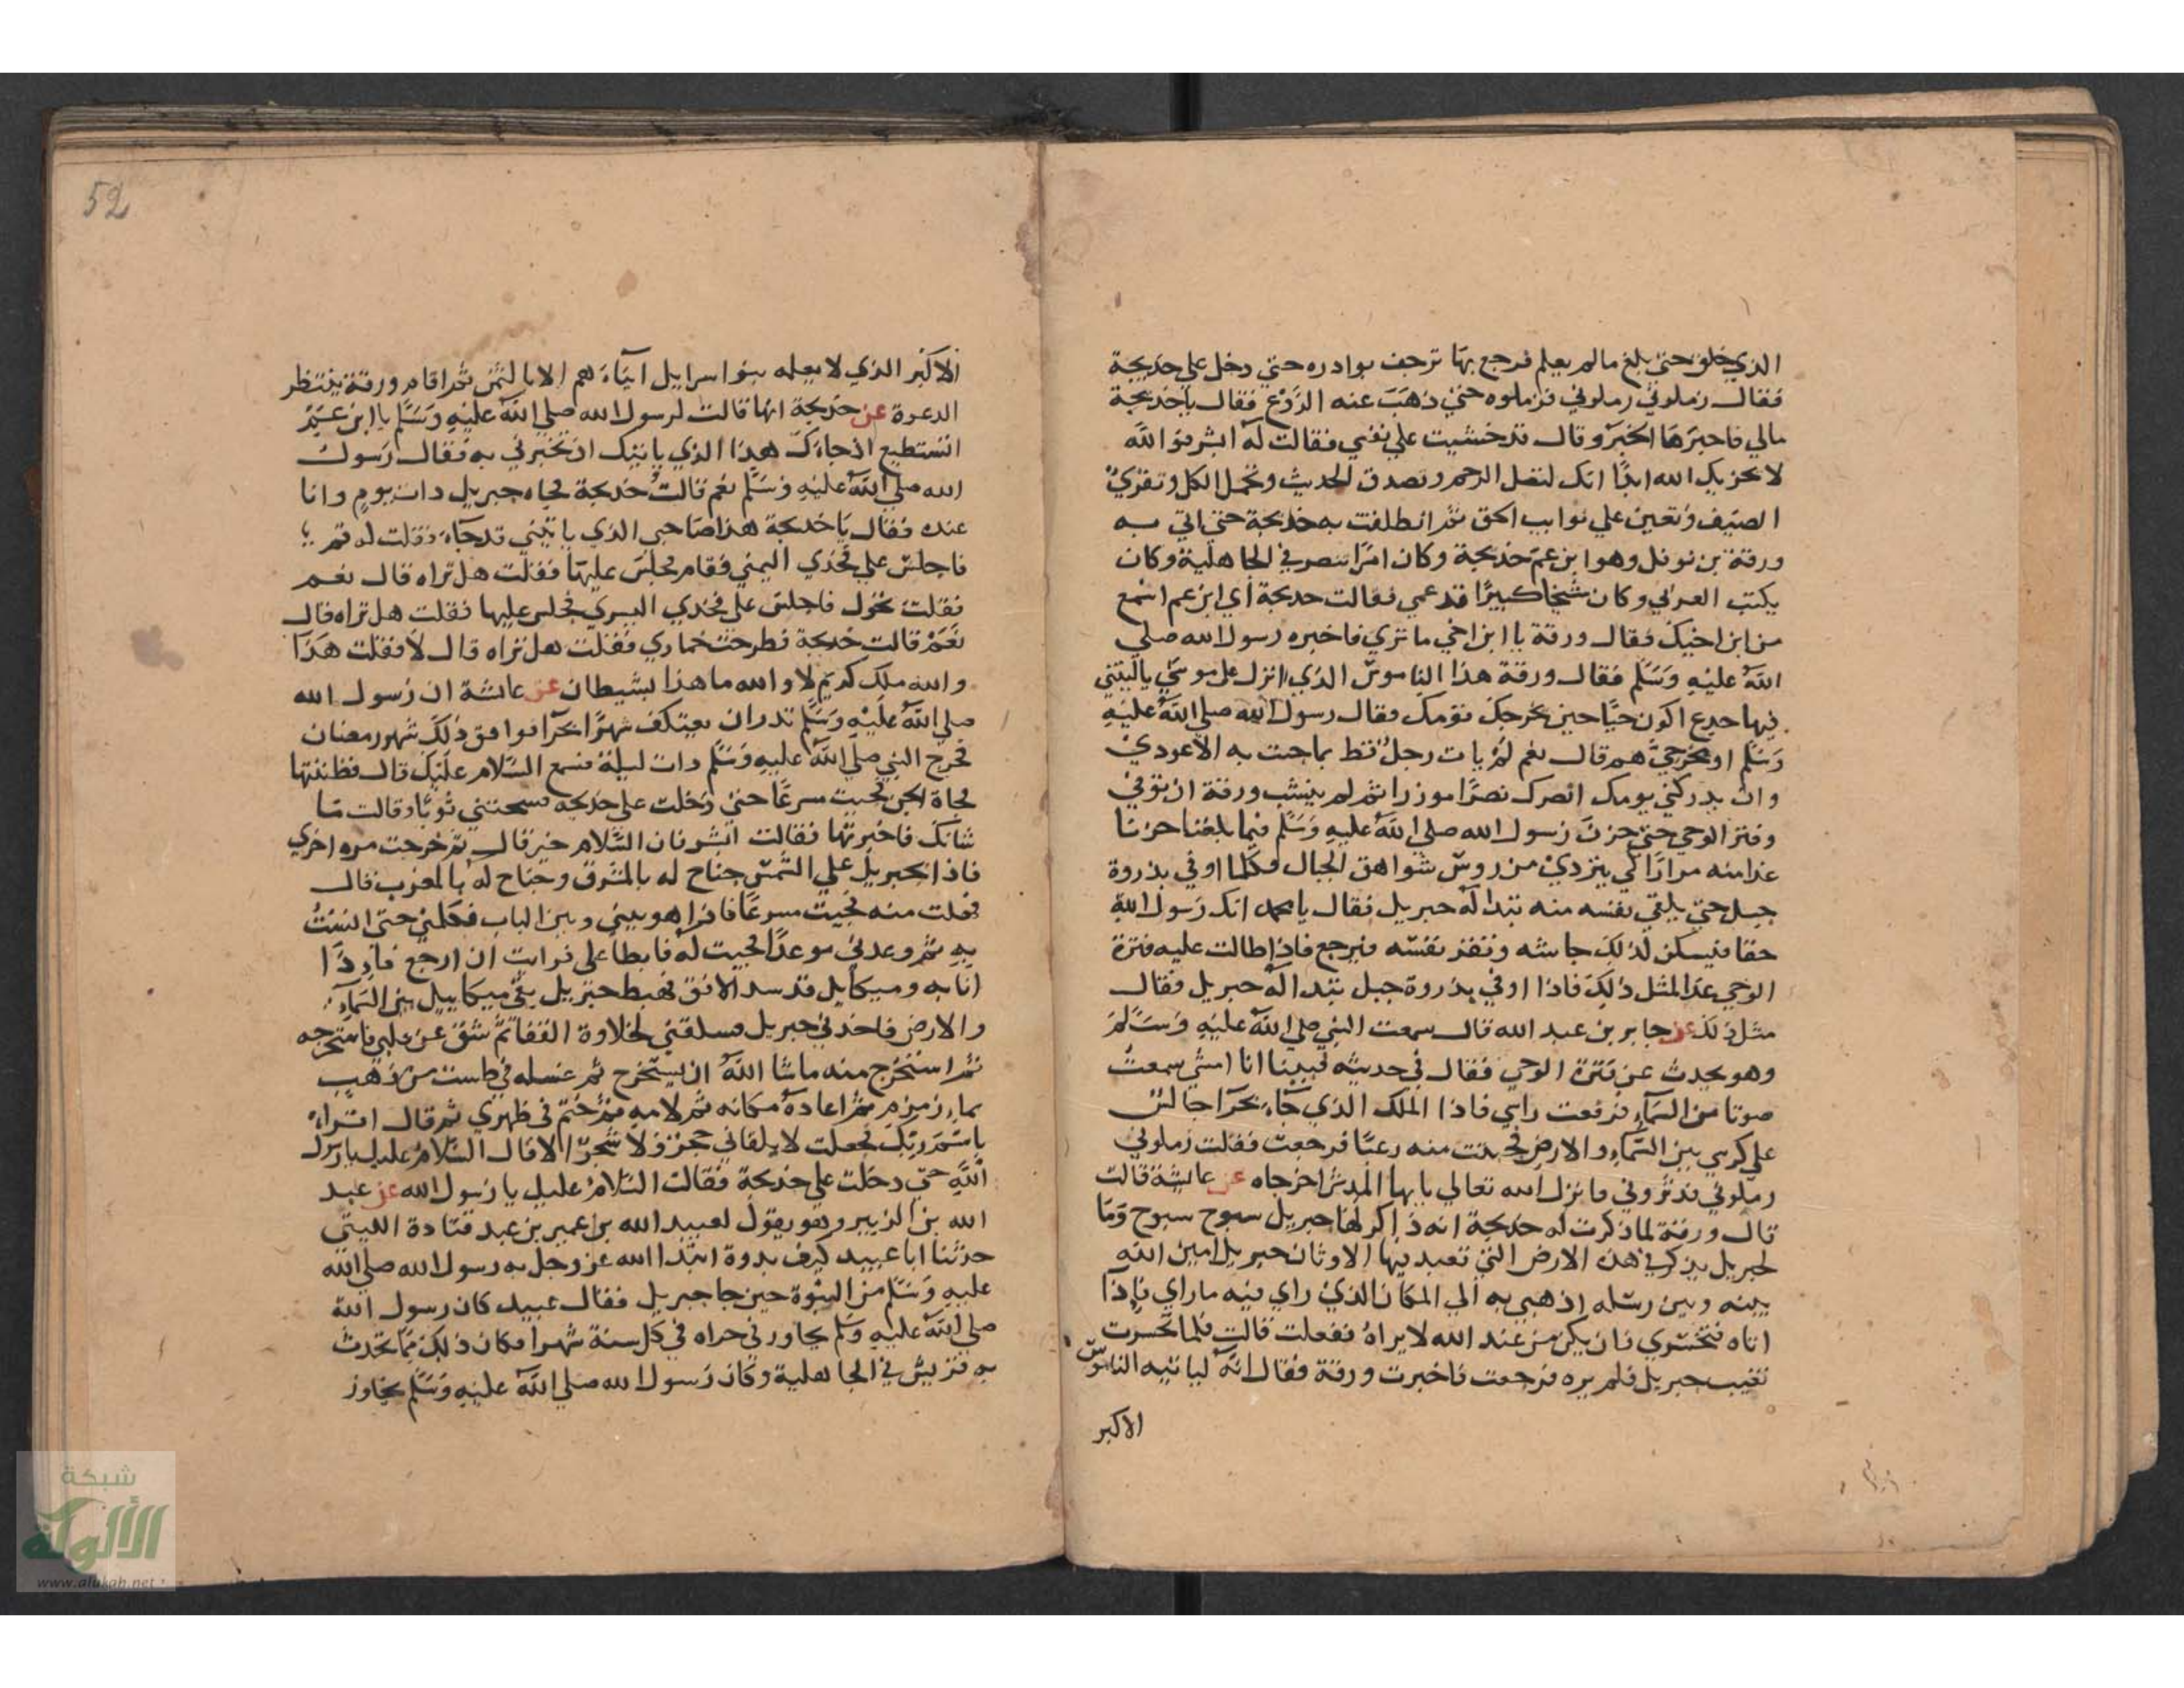 الذي خلق حتي بلغ مالم يعلم فرجع بها ترجف بوادره حتي دخل علي خديجة
فقال زملوني زملوني فزملوه حتي ذهب عنه الروع فقال يا خديجة
مالي فاخبرها الخبر وقال قد خشيت علي نفسي فقالت له ابشر فوالله
لا يخزيك الله ابدا انك لتصل الرحم وتصدق الحديث وتحمل الكل وتقري
الضيف وتعين علي نوايب الحق ثم انطلقت به خديجة حتي اتي به
ورقة بن نوفل وهو ابن عم خديجة وكان امرا تنصر في الجاهلية وكان
يكتب العربي وكان شيخا كبيرا قد عمي فقالت خديجة اي ابن عم اسمع
من ابن اخيك فقال ورقة يا ابن اخي ما تري فاخبره رسول الله صلي
الله عليه وسلم فقال ورقة هذا الناموس الذي انزل علي موسي ياليتني
فيها جدع اكون حيا حين يخرجك قومك فقال رسول الله صلي الله عليه
وسلم او مخرجي هم قال نعم لم يات رجل قط بما جيت به الا عودي
وان يدركني يومك انصرك نصرا موزرا ثم لم ينشب ورقة ان توفي
وفتر الوحي حتي حزن رسول الله صلي الله عليه وسلم فيما بلغنا حزنا
غدا منه مرارا كي يتردي من روس شواهق الجبال فكلما اوفي بذروة
جبل حتي يلقي نفسه منه تبدا له جبريل فقال يا محمد انك رسول الله
حقا فيسكن لذلك جاشه وتقر نفسه فيرجع فاذا طالت عليه فترة
الوحي غدا لمثل ذلك فاذا اوفي بذروة جبل تبدا له جبريل فقال
مثل ذلك عن جابر بن عبد الله قال سمعت النبي صلي الله عليه وسلم
وهو يحدث عن فترة الوحي فقال في حديثه فبينا انا امشي سمعت
صوتا من السماء فرفعت راسي فاذا الملك الذي جاء بحرا جالس
علي كرسي بين السماء والارض فجيثت منه رعبا فرجعت فقلت زملوني
زملوني فدثروني فانزل الله تعالي يايها المدثر اخرجاه عن عايشة قالت
قال ورقة لما ذكرت له خديجة انه ذاكر لها جبريل سبوح سبوح وما
لجبريل يذكر في هذه الارض التي تعبد فيها الاوثان جبريل امين الله
بينه وبين رسله اذهبي به الي المكان الذي راي فيه ما راي فاذا
اتاه فتحسري فان يكن من عند الله لا يراه ففعلت قالت فلما تحسرت
تغيب جبريل فلم يره فرجعت فاخبرت ورقة فقال انه لياتيه الناموس
الاكبر
52
الاكبر الذي لا يعلمه بنوا اسرايل ابناءهم الا بالثمن ثم اقام ورقة ينتظر
الدعوة عن خديجة انها قالت لرسول الله صلي الله عليه وسلم يا ابن عم
اتستطيع اذا جاءك هذا الذي ياتيك ان تخبرني به فقال رسول
الله صلي الله عليه وسلم نعم قالت خديجة فجاه جبريل ذات يوم وانا
عنده فقال يا خديجة هذا صاحبي الذي ياتيني قد جاء فقلت له قم
فاجلس علي فخذي اليمني فقام فجلس عليها فقلت هل تراه قال نعم
فقلت تحول فاجلس علي فخذي اليسري فجلس عليها فقلت هل تراه قال
نعم قالت خديجة فطرحت خماري فقلت هل تراه قال لا فقلت هذا
والله ملك كريم لا والله ما هذا بشيطان عن عائشة ان رسول الله
صلي الله عليه وسلم نذر ان يعتكف شهرا بحرا فوافق ذلك شهر رمضان
فخرج النبي صلي الله عليه وسلم ذات ليلة فسمع السلام عليك قال فظننتها
فجاة الجن فجيت مسرعا حتي دخلت علي خديجة فسجتني ثوبا وقالت ما
شانك فاخبرتها فقالت ابشر فان السلام خير قال ثم خرجت مره اخري
فاذا بجبريل علي الشمس جناح له بالمشرق وجناح له بالمغرب قال
فهلت منه فجيت مسرعا فاذا هو بيني وبين الباب فكلمني حتي انست
به ثم وعدني موعدا فجيت له فابطا علي فرايت ان ارجع فاذا
انا به وميكايل قد سد الافق فهبط جبريل بقي ميكاييل بين السماء
والارض فاخذني جبريل فسلقني لحلاوة القفا ثم شق عن قلبي فاستخرجه
ثم استخرج منه ما شا الله ان يستخرج ثم غسله في طاست من ذهب
بماء زمزم ثم اعاده مكانه ثم لامه ثم ختم في ظهري ثم قال اقراء
باسم ربك فجعلت لا يلقاني حجر ولا شجر الا قال السلام عليك يا رسول
الله حتي دخلت علي خديجة فقالت السلام عليك يا رسول الله عن عبد
الله بن الزبير وهو يقول لعبيد الله بن عمير بن عبد قتادة الليثي
حدثنا ابا عبيد كيف بدوة ابتدا الله عز وجل به رسول الله صلي الله
عليه وسلم من النبوة حين جا جبريل فقال عبيد كان رسول الله
صلي الله عليه وسلم يجاور في حراه في كل سنة شهرا وكان ذلك مما تحدث
به قريش في الجاهلية وكان رسول الله صلي الله عليه وسلم يجاور
شبكة
الألوكة
www.alukah.net